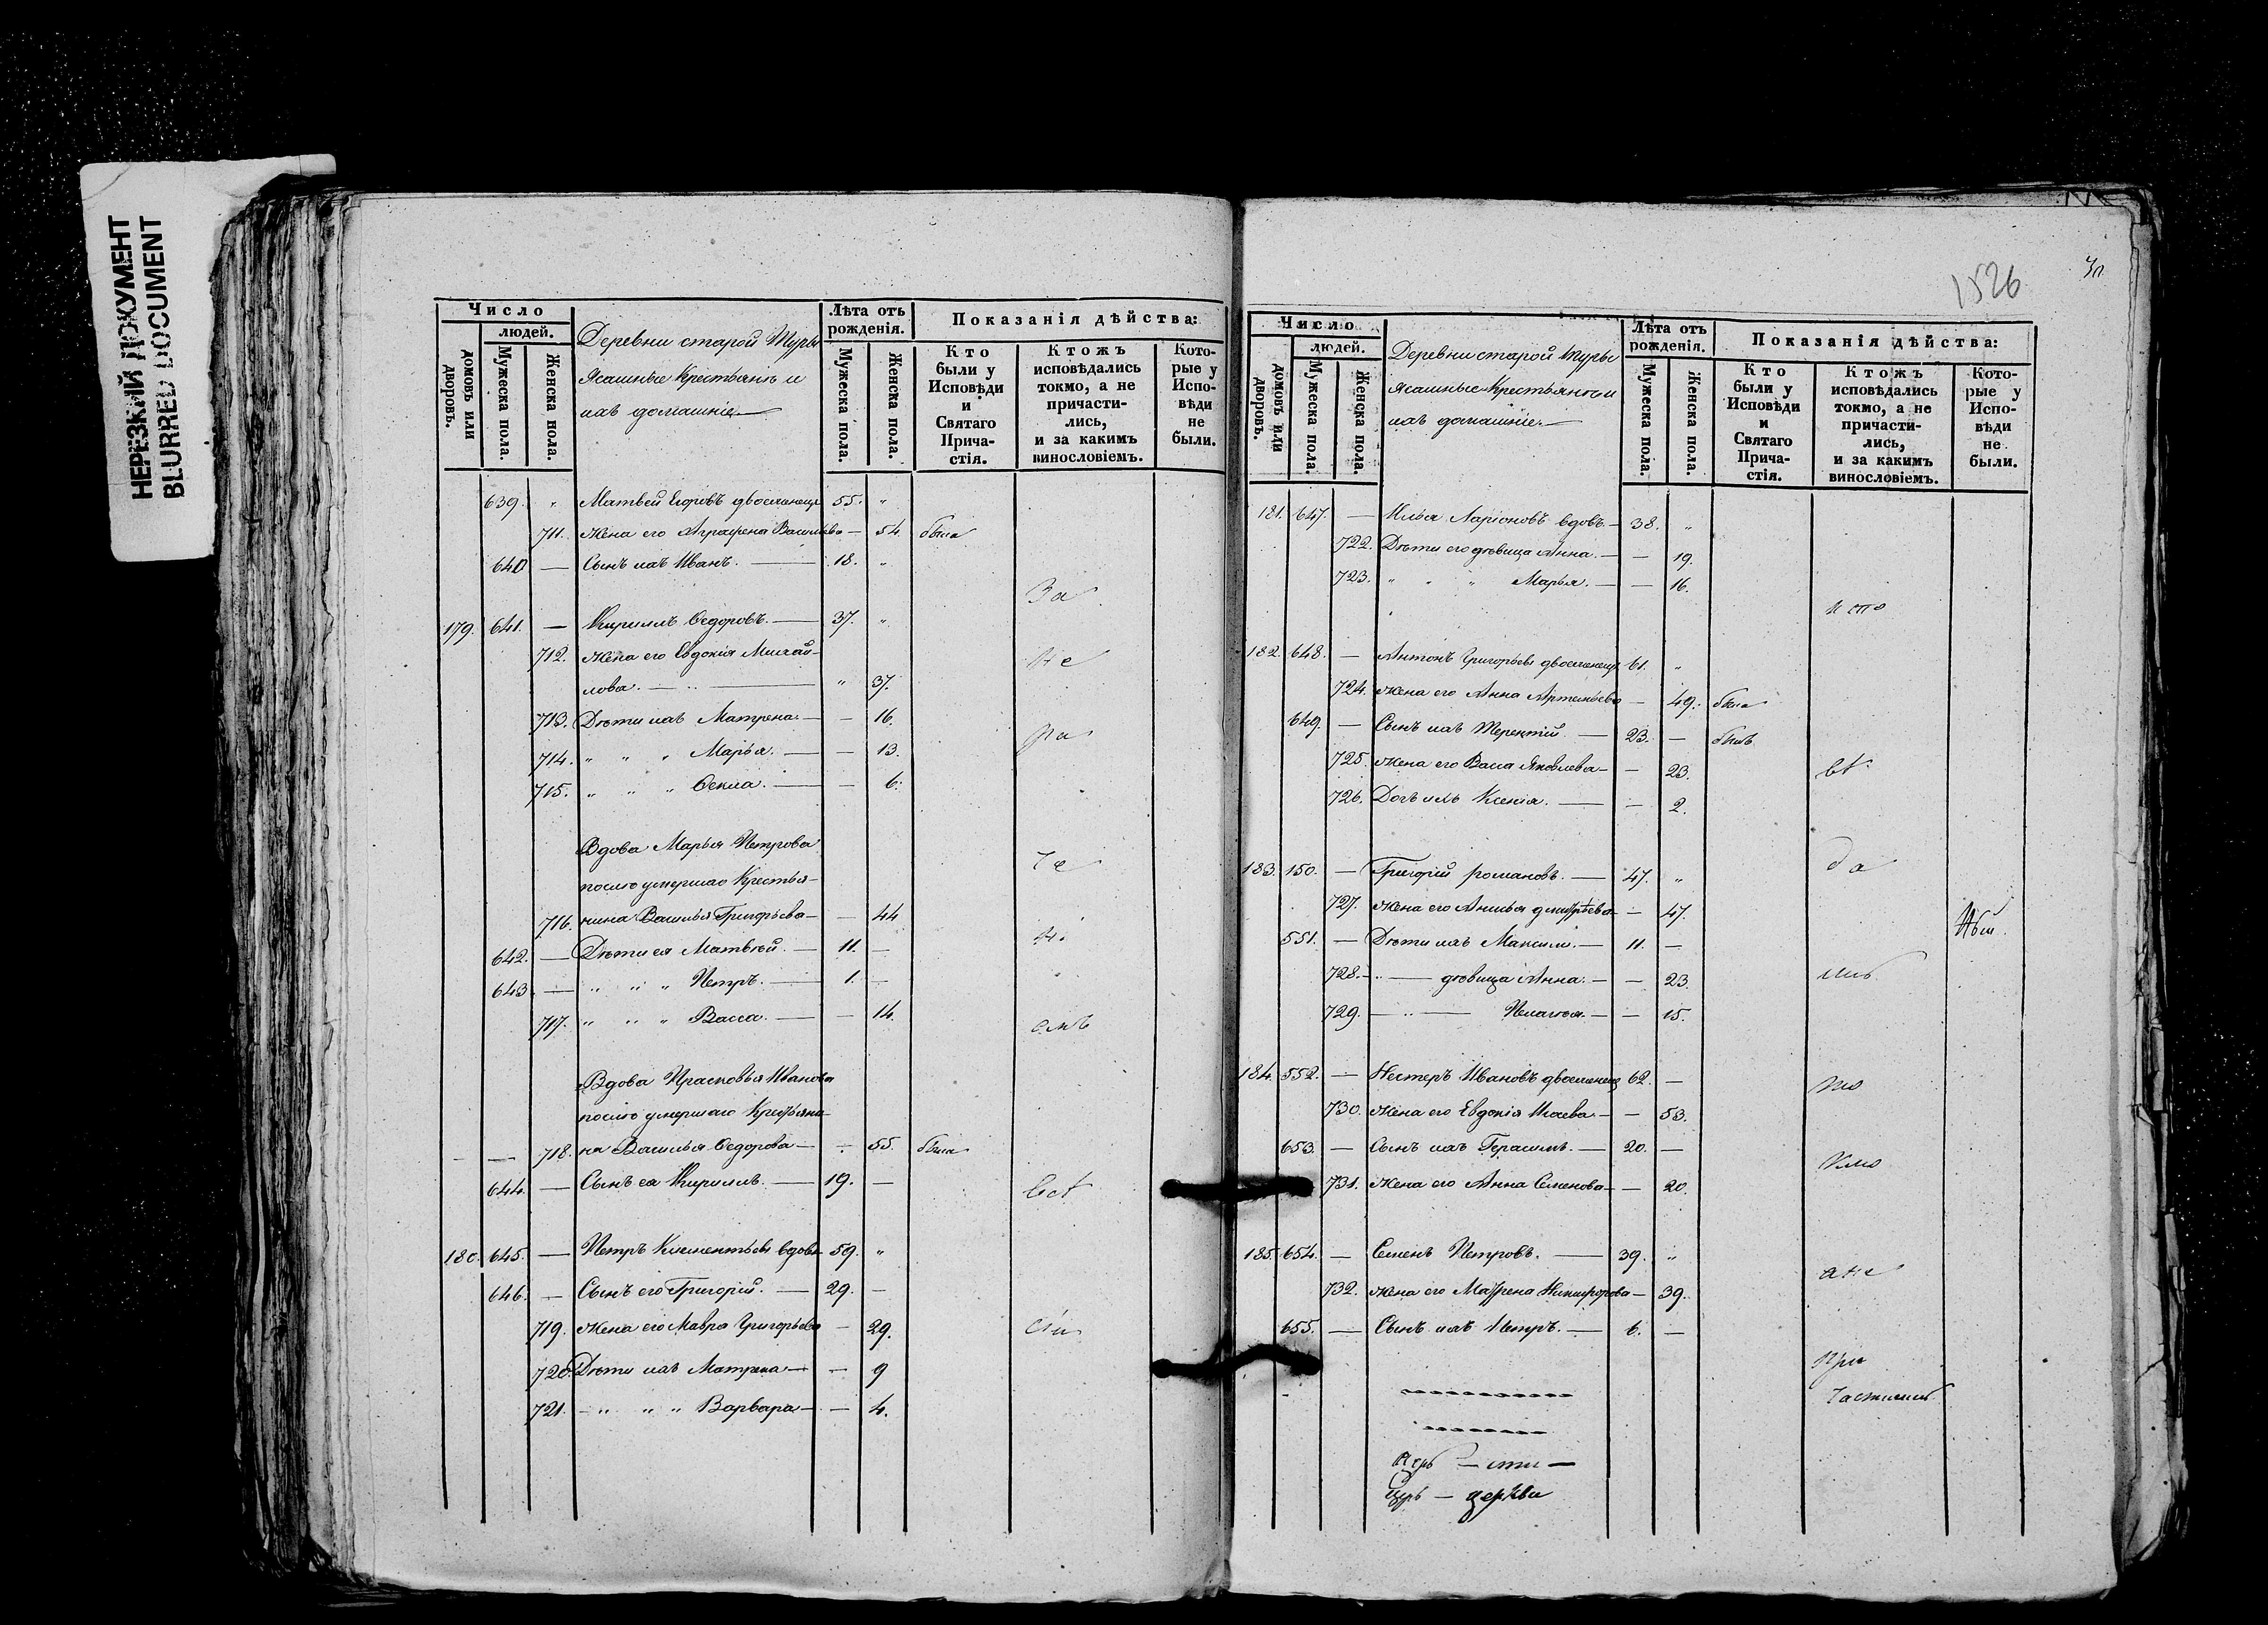 НЕРЕЗКИЙ ДОКУМЕНТ
BLURRED DOCUMENT
Число
людей.
домовъ или дворовъ.
Мужеска пола.
Женска пола.
Деревни старой Турьи
Ясашные Крестьяне и
ихъ домашніе
Лѣта отъ рожденія.
Мужеска пола.
Женска пола.
Показанія дѣйства:
Кто были у Исповѣди и Святаго Прича-стія.
Ктожъ исповѣдались токмо, а не причасти-лись, и за какимъ винословіемъ.
Кото-рые у Испо-вѣди не были.
639. " Матвей Егоровъ двоеженецъ 55. "
711. Жена его Аграфена Васильева — 54. была
640 — Сынъ ихъ Иванъ. — 18. "
За
179. 641. — Кириллъ Ѳедоровъ. — 37. "
712. Жена его Евдокія Михай-
лова. — " 37.
Не
713. Дѣти ихъ Матрена. — — 16.
ра
714. " " " Марья. — — 13.
715. " " " Ѳекла. — — 6.
Вдова Марья Петрова
послѣ умершаго Крестья-
716. нина Василья Григорьева — — 44
642. — Дѣти ея Матвѣй. — 11. —
643 — " " " Петръ. — 1. —
717. " " " Васса. — — 14.
Вдова Прасковья Иванова
послѣ умершаго Крестьяни-
— — 718. на Василья Ѳедорова — — 55. была
644. — Сынъ ея Кириллъ. — 19. —
180. 645. — Петръ Клементьевъ вдовъ 59. "
646. — Сынъ его Григорій. — 29. —
719. Жена его Мавра Григорьева — 29.
720. Дѣти ихъ Матрена — — 9
721. — " " " Варвара — — 4.
1526
Число
людей.
домовъ или дворовъ.
Мужеска пола.
Женска пола.
Деревни старой Турьи
Ясашные Крестьяне и
ихъ домашніе
Лѣта отъ рожденія.
Мужеска пола.
Женска пола.
Показанія дѣйства:
Кто были у Исповѣди и Святаго Прича-стія.
Ктожъ исповѣдались токмо, а не причасти-лись, и за какимъ винословіемъ.
Кото-рые у Испо-вѣди не были.
181. 647. — Илья Ларіоновъ вдовъ. — 38. "
722. Дѣти его дѣвица Анна. — — 19.
723. " " " Марья. — — 16.
испо
182. 648. — Антонъ Григорьевъ двоеженецъ 61. "
724. Жена его Анна Артемьева — 49. была
649. — Сынъ ихъ Терентій. — 23. — былъ
725. Жена его Васса Яковлева — — 23.
вѣ
726. Дочь ихъ Ксенія. — — 2.
да
183. 150. — Григорій романовъ. — 47. "
727. Жена его Анисья дмитріева — — 47.
551. — Дѣти ихъ Максимъ. — 11. —
728. — " — дѣвица Анна. — — 23.
729. — " — Пелагея. — — 15.
184. 552. — Нестеръ Ивановъ двоеженецъ 62. —
730. Жена его Евдокія Исаева — — 53.
653. — Сынъ ихъ Герасимъ. — 20. —
731. Жена его Анна Семенова — — 20.
185. 654. — Семенъ Петровъ. — 39. "
ане
732. Жена его Матрена Никифорова — 39.
655. — Сынъ ихъ Петръ. — 6. —
При
частились
— сти —
Церь — церкви